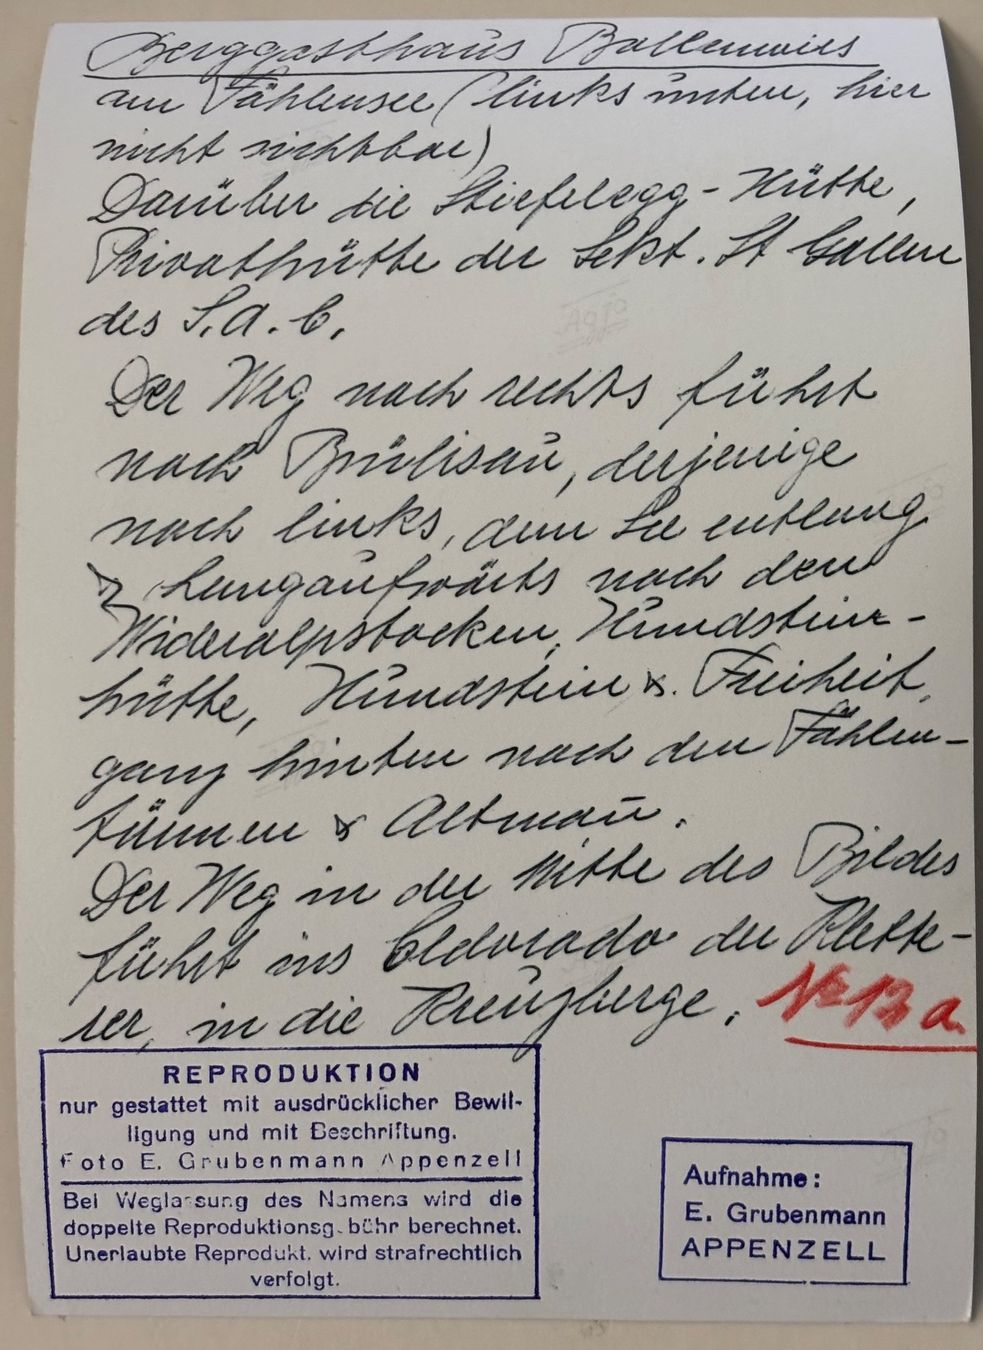 Berggasthaus Bollenwies
am Fählensee (links unten, hier
nicht sichtbar)
Darüber die Stiefelegg-Hütte,
Privathütte der Sekt. St Gallen
des S.A.C.
Der Weg nach rechts führt
nach Brülisau, derjenige
nach links, dem See entlang
& langaufwärts nach den
Wideralpstöcken, Hundstein-
hütte, Hundstein & Freiheit,
ganz hinten nach den Fählen-
türmen & Altmau.
Der Weg in der Mitte des Bildes
führt ins Eldorado der Klette-
rer, in die Kreuzberge. No 13a
REPRODUKTION
nur gestattet mit ausdrücklicher Bewil-
ligung und mit Beschriftung.
Foto E. Grubenmann Appenzell
Bei Weglassung des Namens wird die
doppelte Reproduktionsgebühr berechnet.
Unerlaubte Reprodukt. wird strafrechtlich
verfolgt.
Aufnahme:
E. Grubenmann
APPENZELL